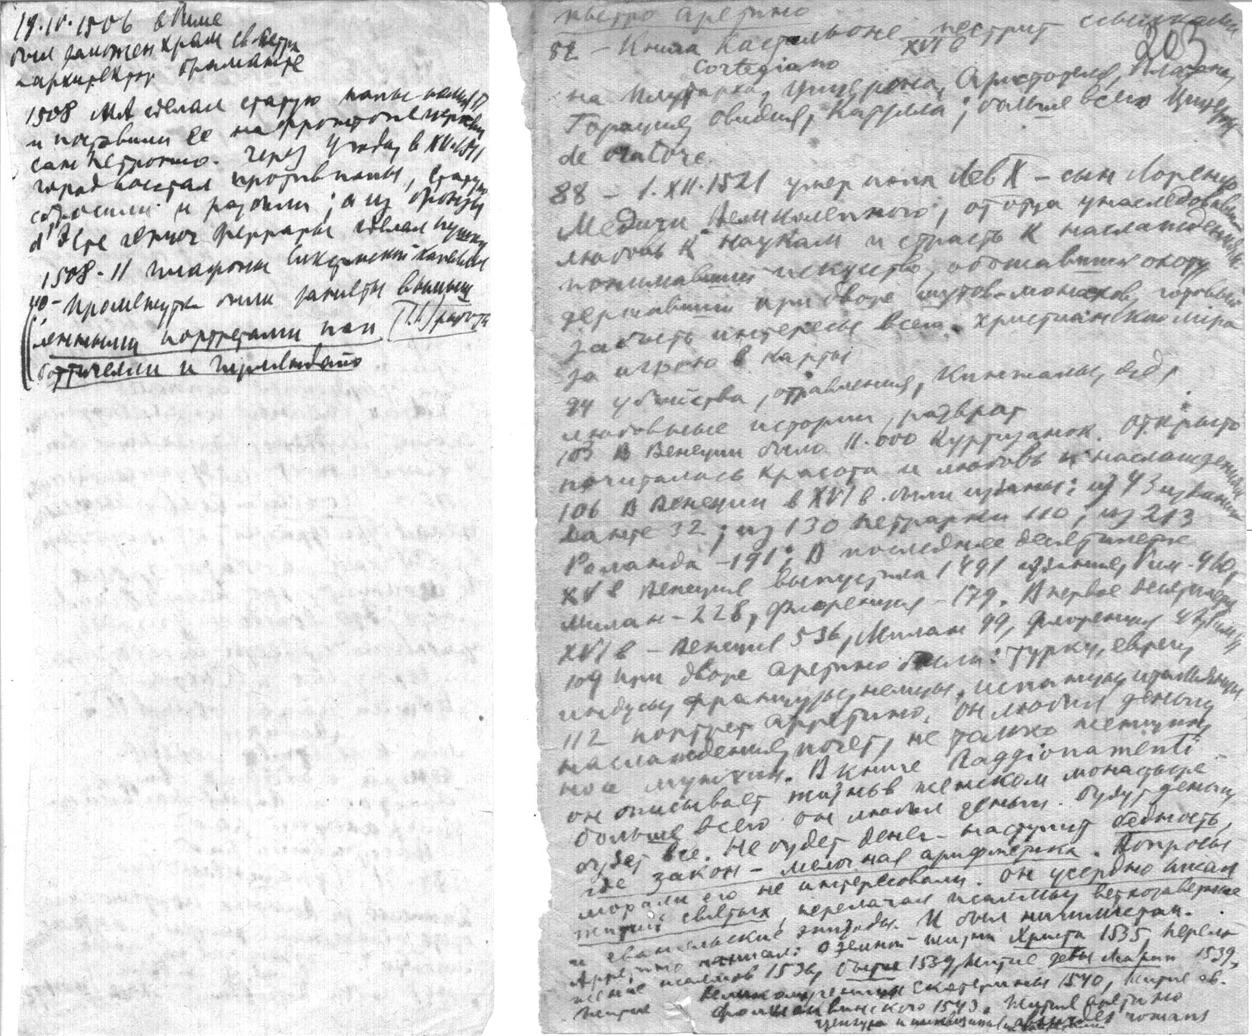 19.IV.1506 в Риме
был заложен храм св Петра
архитектор Браманте
1508 МА сделал статую папы
и поставили ее на фронтоне церкви
сан Петронио. Через 4 года, в XV
город восстал против папы, статую
сбросили и разбили; а из бронзы
д'Эсте герцог Феррары сделал пушку
1508-11 плафоны Сикстинской капеллы
40 - Промежутки были заняты
портретами пап
Боттичелли и Гирляндайо
Пьетро Аретино
203
52 - Книга Кастильоне пестрит ссылками
Cortegiano XVI в
на Плутарха, Цицерона, Аристотеля, Платона,
Горация, Овидия, Катулла; больше всего Цицерон
de oratore.
88 - 1.XII.1521 умер папа Лев X - сын Лоренцо
Медичи Великолепного, от отца унаследовавший
любовь к наукам и страсть к наслаждениям
понимавший искусство, обожавший охоту
державший при дворе шутов-монахов, готовый
забыть интересы всего христианского мира
за игрою в карты
94 убийства, отравления, кинжалы, яд,
любовные истории, разврат
103 В Венеции было 11.000 куртизанок. Открыто
почитались красота и любовь к наслаждениям
106 В Венеции в XVI в. были изданы: из 43 изданий
Данте 32; из 130 Петрарки 110, из 213
Роланда - 191; В последнее десятилетие
XV в Венеция выпустила 1491 издание, Рим - 460,
Милан - 228, Флоренция - 179. В первое десятилетие
XVI в - Венеция 536, Милан 99, Флоренция
109 При дворе Аретино были: турки, евреи,
индусы, французы, немцы, испанцы, итальянцы
112 портрет Аретино. Он любил деньги
наслаждения, почет, не только женщин,
но и мужчин. В книге Raggionamenti
он описывает жизнь в женском монастыре
больше всего он любил деньги. Будут деньги
будет все. Не будет денег - наступит бедность,
где закон - мелочная арифметика. Вопросы
морали его не интересовали. Он усердно писал
жития святых, переделал псалмы ветхозаветные
и евангельские эпизоды. И был
Аретино написал: О земной жизни Христа 1535
псалмов 1536, бытие 1539, житие девы Марии 1539,
житие великомученицы Екатерины 1540, житие св.
Фомы Аквинского 1543. Житие Аретино
romans